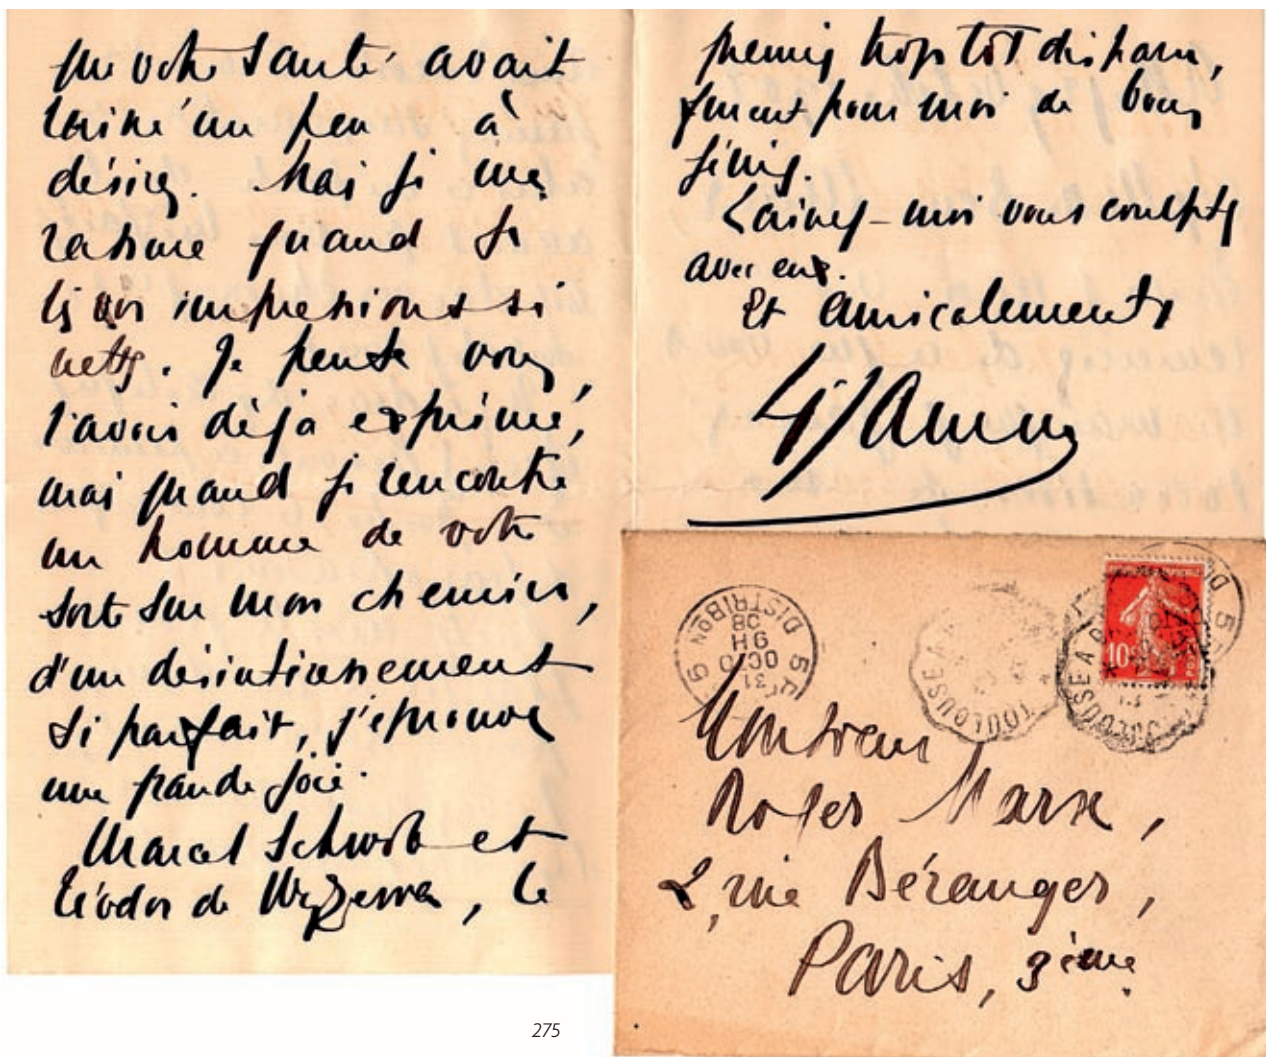 que votre santé avait
laissé un peu à
désirer. Mais je me
rassure quand je
lis vos impressions si
nettes. Je pense vous
l'avoir déjà exprimé,
mais quand je rencontre
un homme de votre
sorte sur mon chemin,
d'un désintéressement
si parfait, j'éprouve
une grande joie.
Marcel Schwob et
Téodor de Wyzewa, le
premier trop tôt disparu,
furent pour moi de bons
génies.
Laissez-moi vous compter
avec eux.
Et amicalement
Jammes
5 DISTRIBON 5
9H
31 OCTO 08
TOULOUSE A
TOULOUSE A
10c
Monsieur
Roger Marx,
2, rue Béranger,
Paris, 3ème.
275